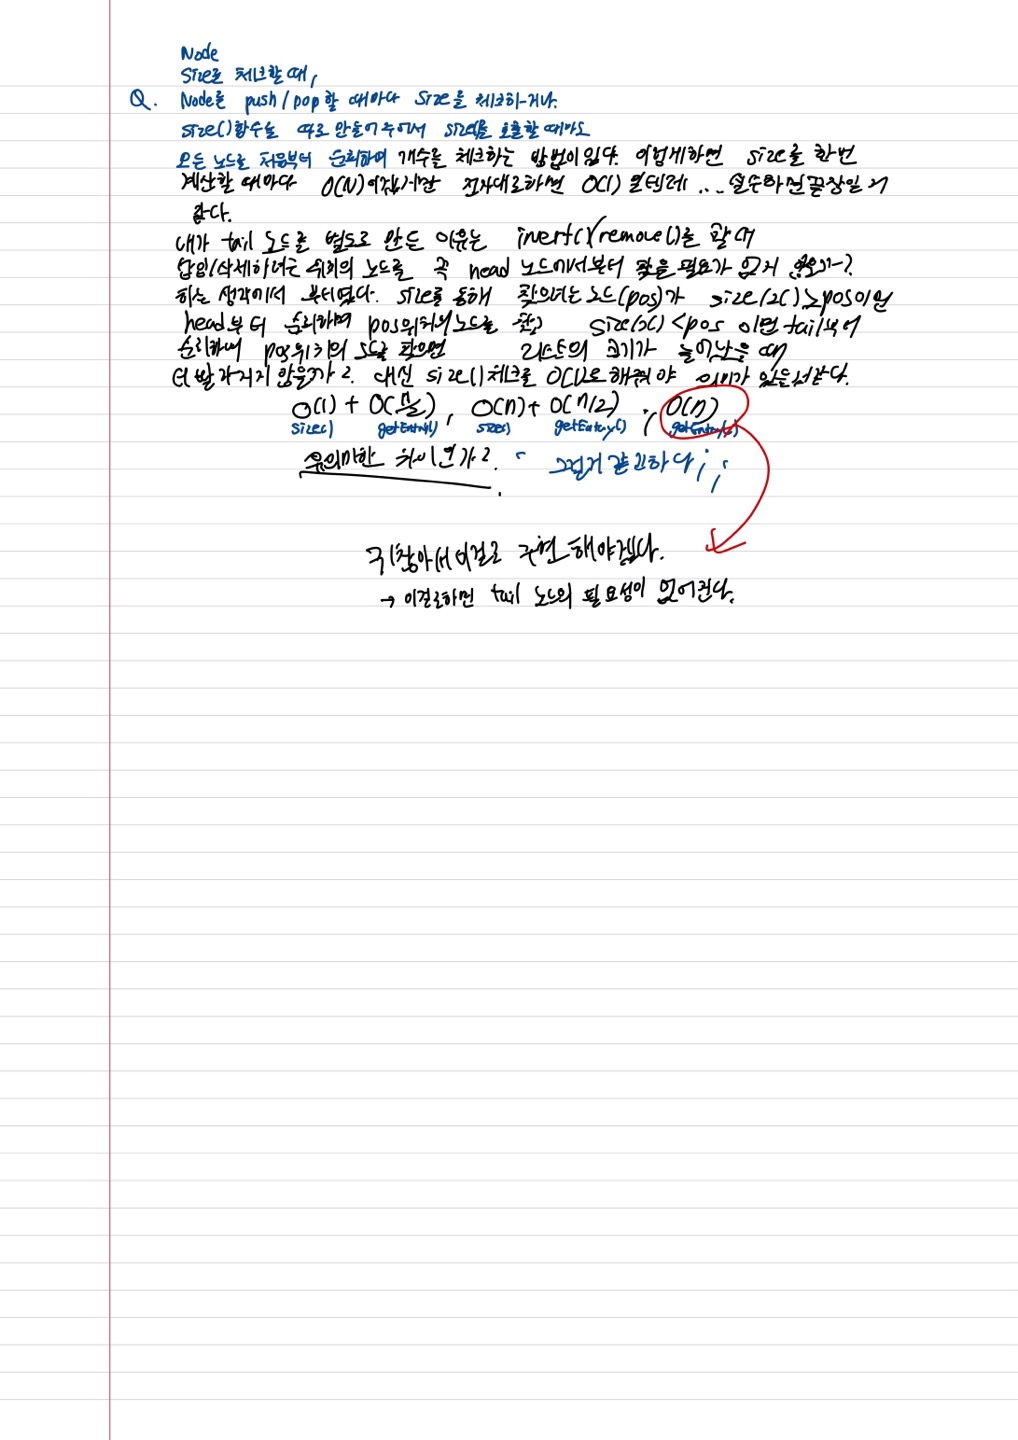 Node
Size를 체크할 때,
Q. Node를 push/pop 할 때마다 size를 체크하거나.
size()함수를 따로 만들어 두어서 size를 호출할 때마다
모든 노드를 처음부터 순회하며 개수를 체크하는 방법이 있다. 이렇게하면 size를 한번
계산할 때마다 O(N)이겠지만 전자대로하면 O(1) 일텐데... 실수하면 끝장일 거
같다.
내가 tail 노드를 별도로 만든 이유는 inert()/remove()를 할 때
삽입/삭제하려는 위치의 노드를 꼭 head 노드에서부터 찾을 필요가 없지 않은가~?
하는 생각에서 부터였다. size를 통해 찾으려는 노드(pos)가 size(/2)≥pos이면
head부터 순회하며 pos위치의 노드를 찾고 size(/2)<pos 이면 tail부터
순회하며 pos위치의 노드를 찾으면 리스트의 크기가 늘어났을 때
더 빨라지지 않을까?. 대신 size()체크를 O(1)로 해줘야 의미가 있는 것 같다.
O(1) + O(n/2), O(n) + O(n/2) ; O(n)
size() getEntry() size() getEntry() getEntry()
유의미한 차이인가?. 그런거 같긴하다;;
귀찮아서 이걸로 구현해야겠다.
→ 이걸로하면 tail 노드의 필요성이 없어진다.